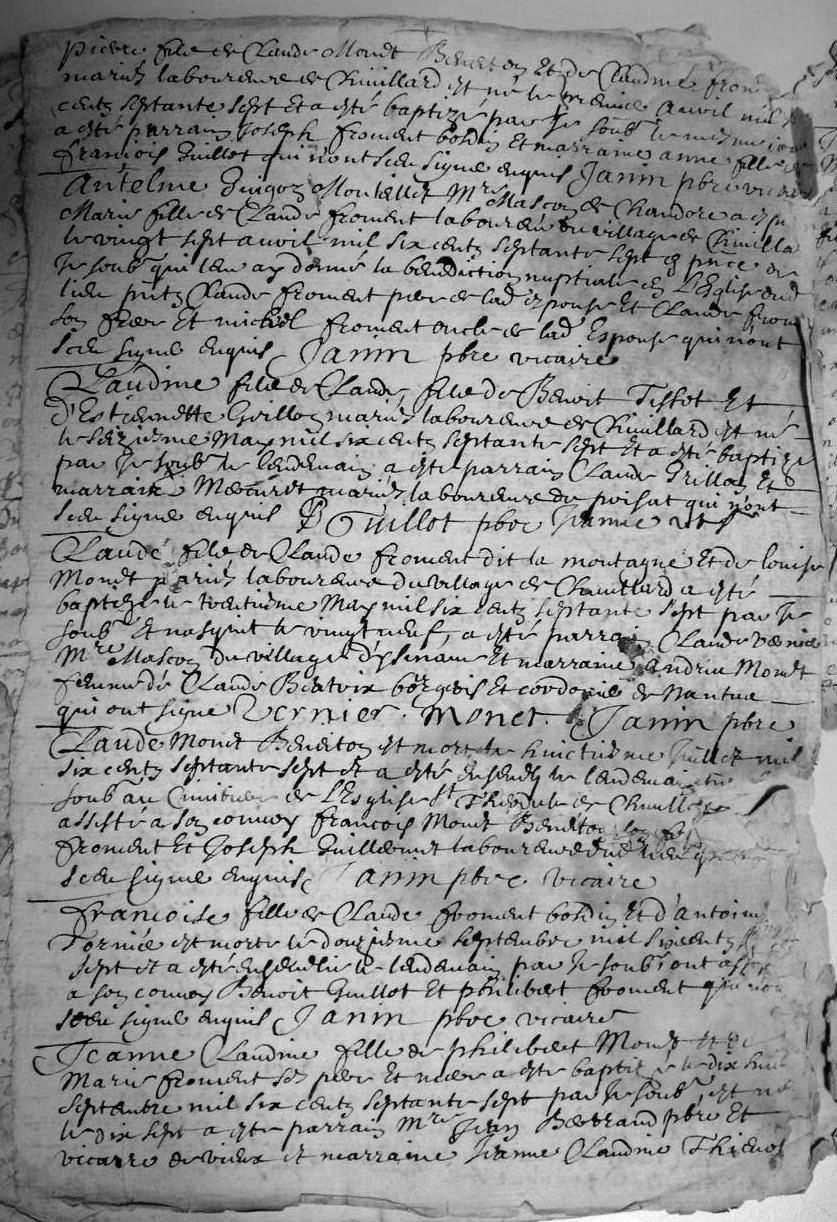 pierre filz de Claude Monet Beneton Et de Claudine from
mariez laboureurs de Chivillard est né le premier avril mil
centz septante sept Et a esté baptizé par Je soub le mesme jour
a esté parrain Joseph froment bordin Et marraine anne fille de
francois Guillot qui n'ont sceu signe enquis Janin pbre vicaire
Antelme Guigoz Montillet Mre Masson de Chandore a espouse
Marie fille de Claude froment laboureur du village de Chivilla
le vingt sept avril mil six centz septante sept en pnce de
Je soub qui leur ay donné la benediction nuptiale en L'Eglise dud
lieu pntz Claude froment pere de lad espouse Et Claude from
son frere Et michel froment oncle de lad Espouse qui n'ont
sceu signe enquis Janin pbre vicaire
Claudine fille de Claude, filz de Benoit Tissot Et
d'Estiennette Grillon mariez laboureurs de Chivillard est né
le seziesme May mil six centz septante sept Et a esté baptizé
par Je soub le lendemain a esté parrain Claude Grillon Et
marraine mariez laboureurs du poisat qui n'ont
sceu signe enquis P Guillot pbre
Claude filz de Claude froment dit la montagne Et de louise
Monet mariez laboureurs du village de Chivillard a esté
baptizé le trentiesme May mil six centz septante sept par Je
soub Et nasquit le vingt neuf, a esté parrain Claude Vernier
Mre Masson du village d'Ysenave Et marraine Andrea Monet
femme de Claude Beatrix borgeois Et cordonie de Nantua
qui ont signe Vernier. Monet. Janin pbre
Claude Monet Beneton est mort le huictiesme Juillet mil
six centz septante sept Et a esté ensevely le lendemain par
soub au Cimitiere de L'Esglise St Theodule de Chivillard
assisté a son convoy francois Monet Beneton
froment Et Joseph Guillot laboureurs dud lieu qui
sceu signe enquis Janin pbre vicaire
francoise fille de Claude froment bordin Et d'antoine
Tornier est morte le douziesme septembre mil six centz
sept Et a esté ensevelie le lendemain par Je soub ont assi
a son convoy Benoit Guillot Et philibert froment qui n'ont
sceu signe enquis Janin pbre vicaire
Jeanne Claudine fille de philibert Monet Et de
Marie froment ses pere Et mere a esté baptizée le dix huit
septembre mil six centz septante sept par Je soub est né
le dix sept a esté parrain Mre Jean Bertrand pbre Et
vicaire de vieux et marraine Jeanne Claudine Thienot